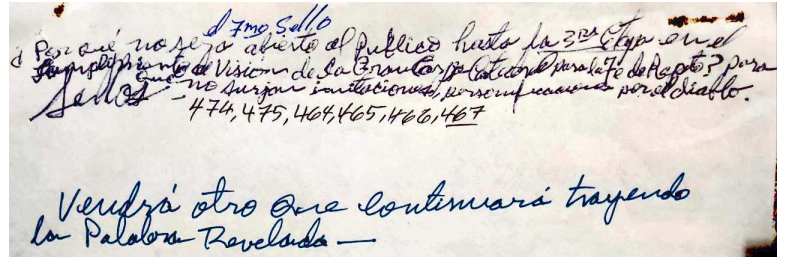 el 7mo Sello
¿Por qué no será abierto al Publico hasta la 3ra Etapa en el
Cumplimiento de Vision de la Gran Carpa Catedral para la Fe de Rapto? para
Sellos - que no surjan imitaciones, personificaciones por el diablo.
474, 475, 464, 465, 466, 467
Vendrá otro que continuará trayendo
la Palabra Revelada —